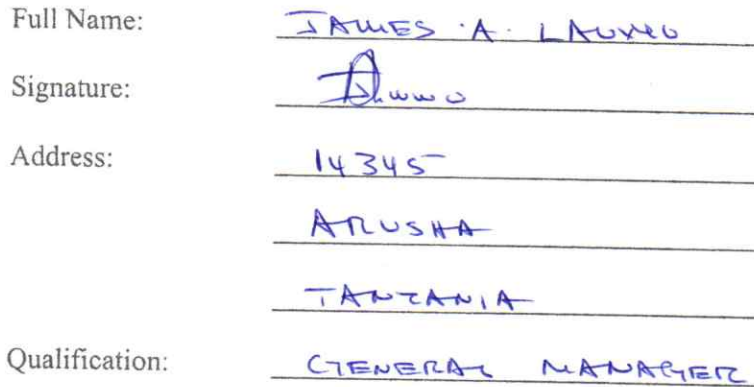 Full Name: JAMES A.
Signature:
Address: 14345
ARUSHA
TANZANIA
Qualification: GENERAL MANAGER